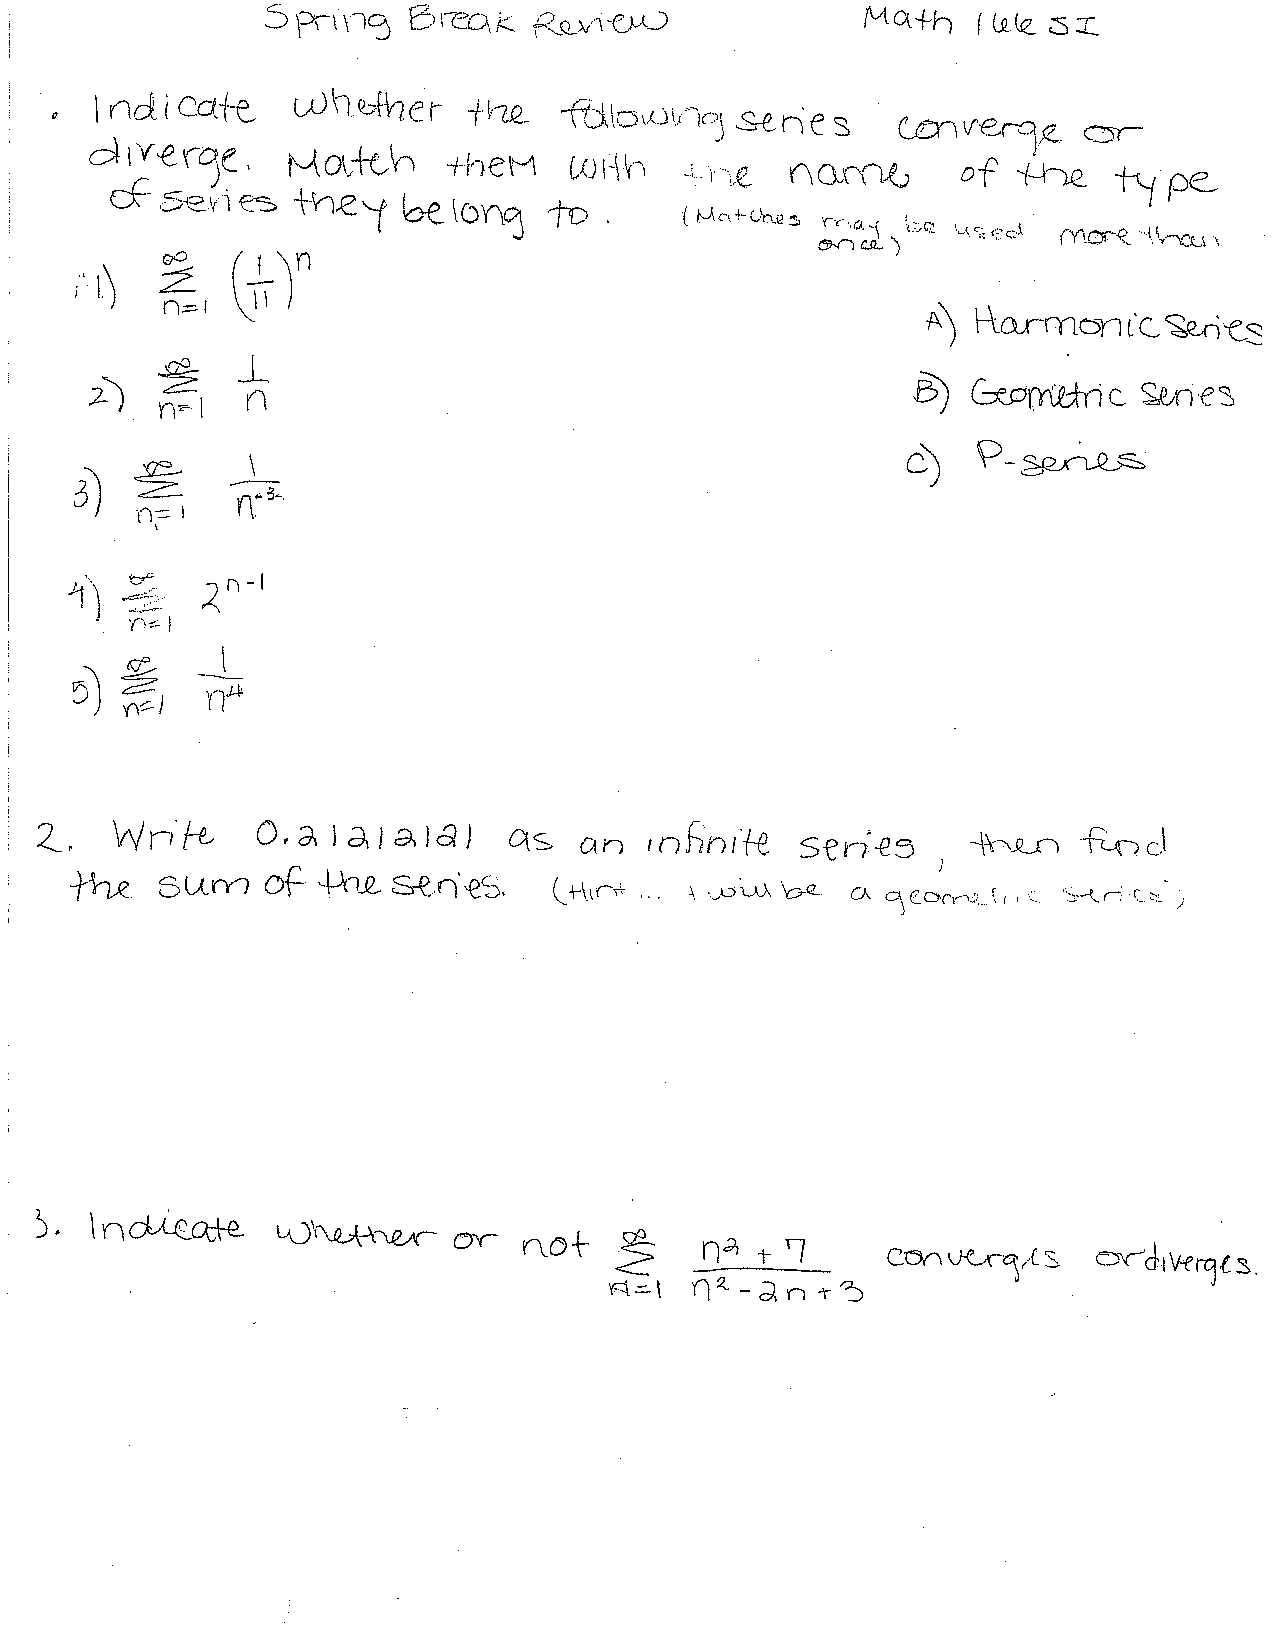 Spring Break Review Math 166 SI
. Indicate whether the following series converge or
diverge. Match them with the name of the type
of series they belong to. (Matches may be used more than
once)
1) ∞ Σ n=1 (1/11)^n
A) Harmonic Series
2) ∞ Σ n=1 1/n
B) Geometric Series
C) P-series
3) ∞ Σ n=1 1/n^-3
4) ∞ Σ n=1 2^n-1
5) ∞ Σ n=1 1/n^4
2. Write 0.21212121 as an infinite series, then find
the sum of the series. (Hint... will be a geometric series)
3. Indicate whether or not ∞ Σ n=1 n^2+7/n^2-2n+3 converges or diverges.